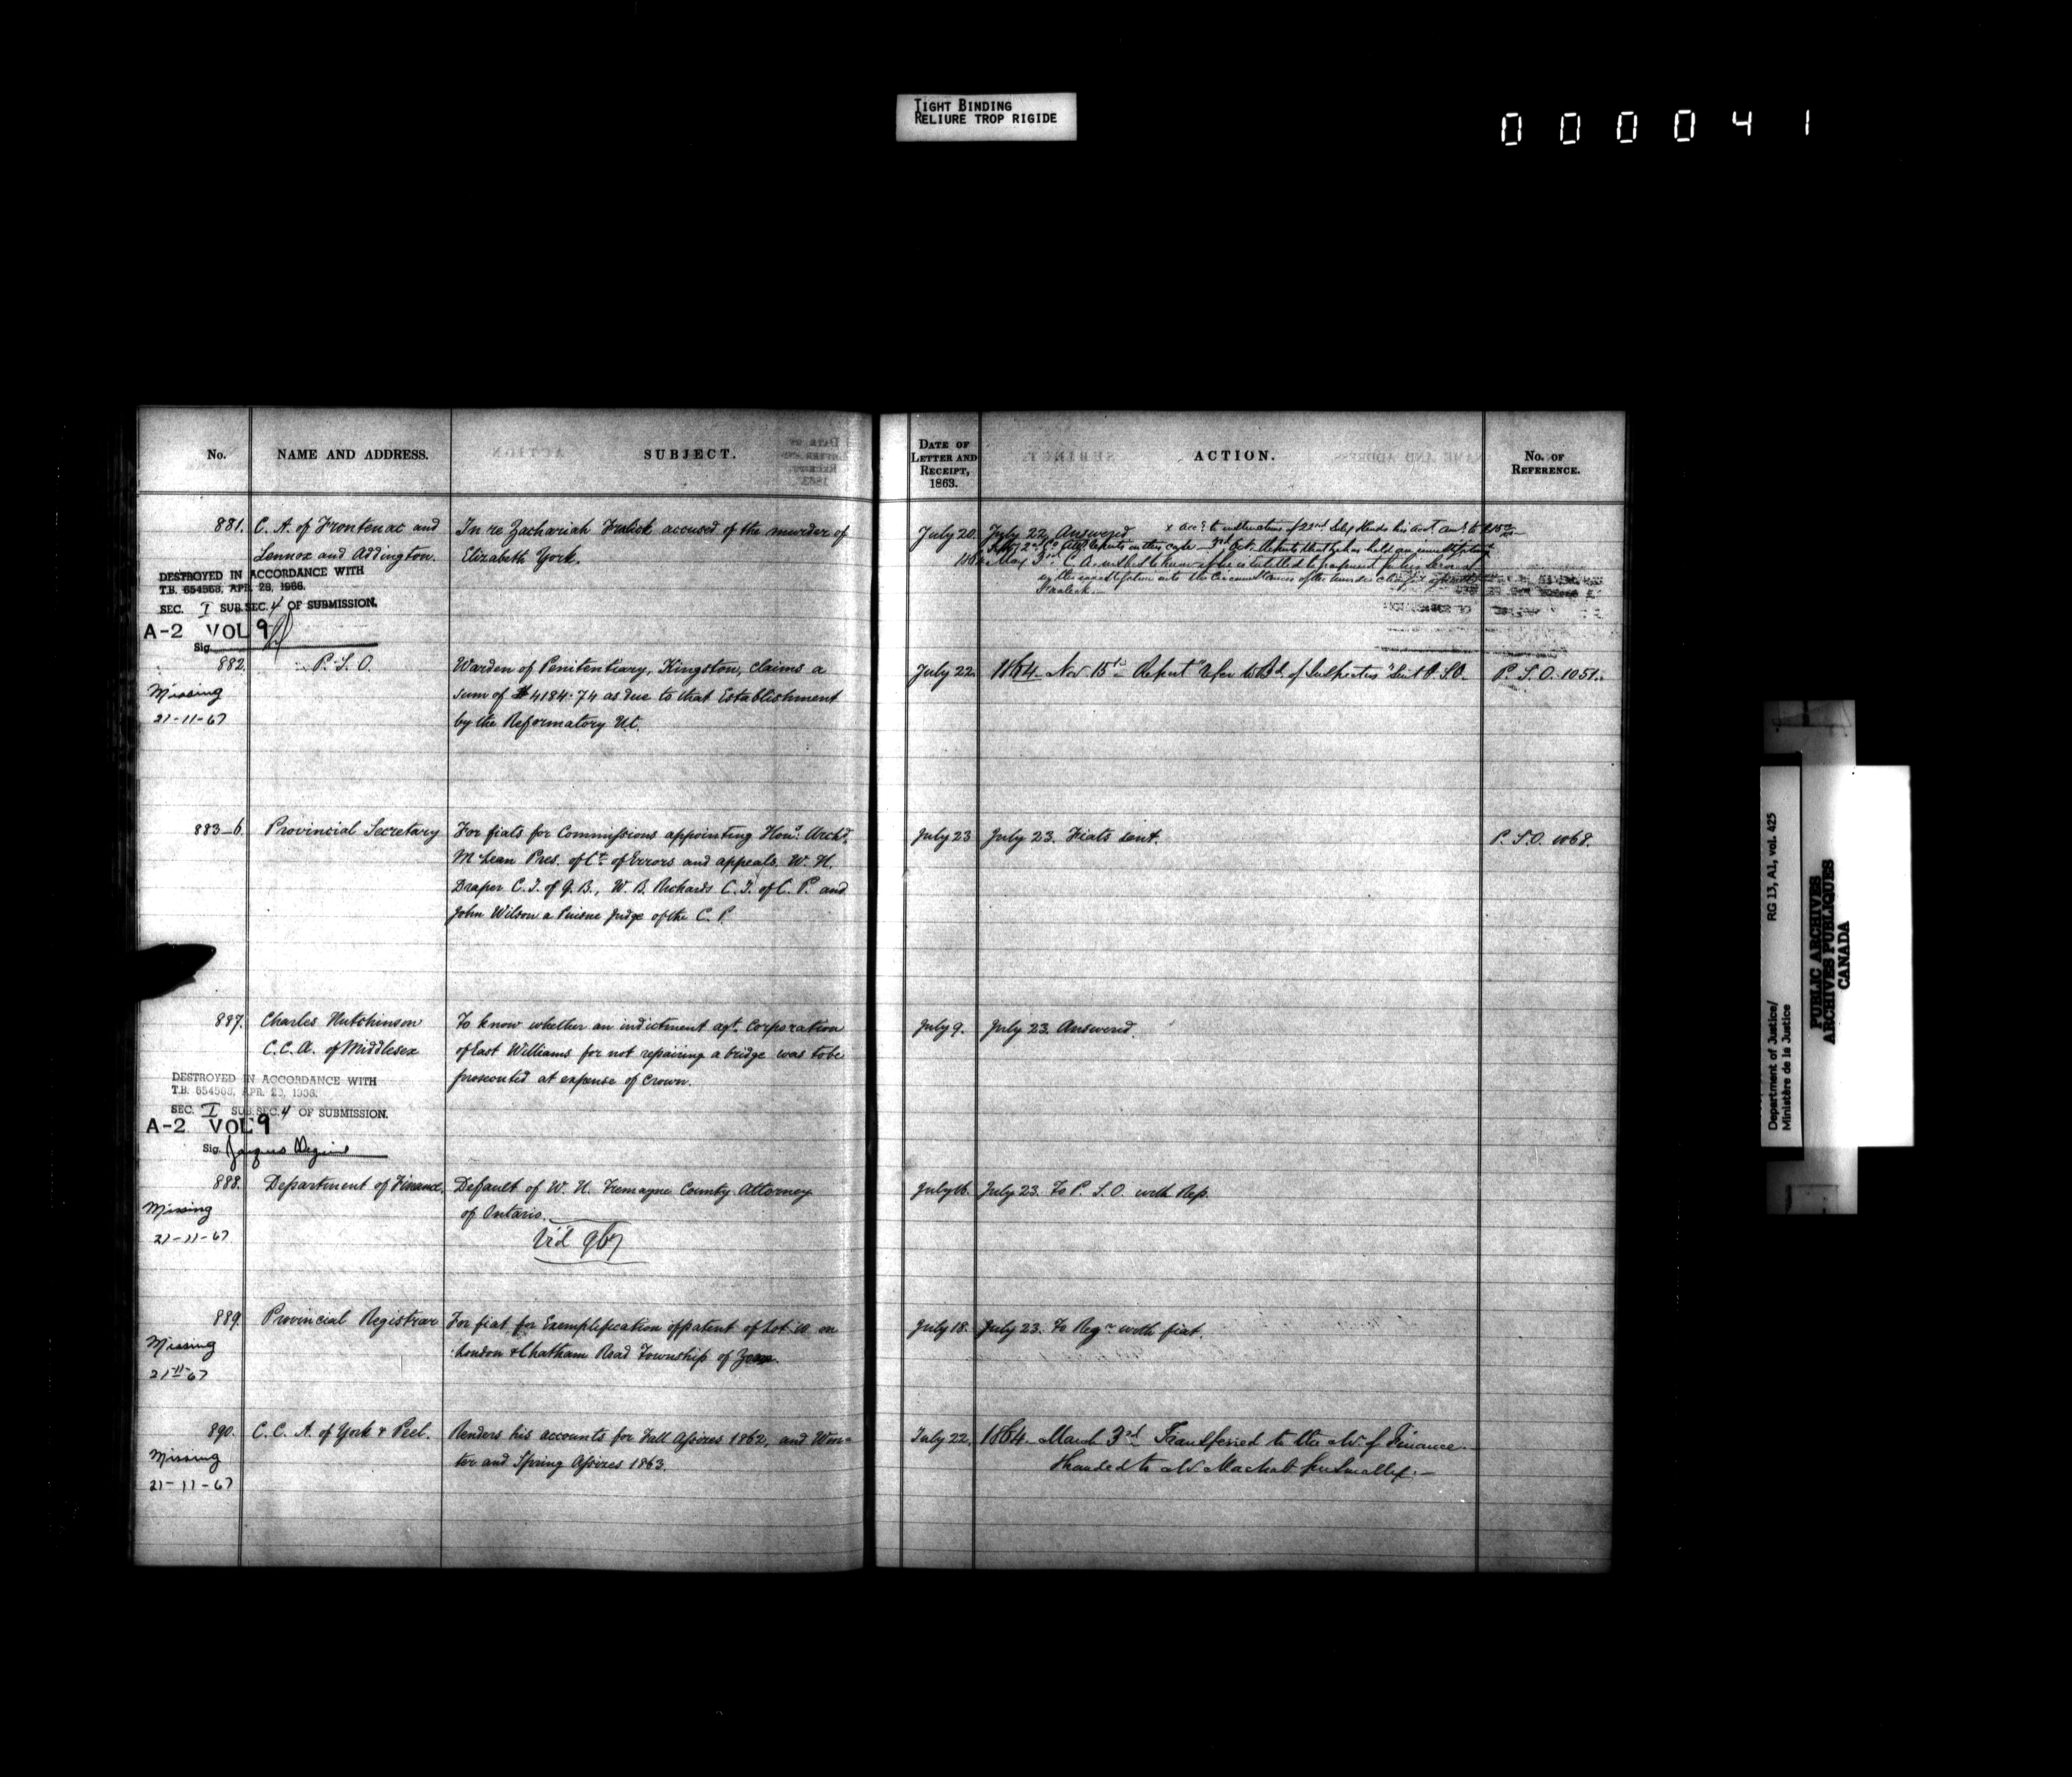 TIGHT BINDING
RELIURE TROP RIGIDE
000041
No.
NAME AND ADDRESS.
SUBJECT.
DATE OF
LETTER AND
RECEIPT,
1863.
ACTION.
No. OF
REFERENCE.
881. C. A. of Frontenac and
Lennox and Addington.
In re Zachariah Fralick accused of the murder of
Elizabeth York.
July 20. July 22. Answered
3rd Oct. Reports that he has held an investigation
May 3rd C. A. wished to know if he is entitled to
the investigation into the circumstances of the murder
Fralick.
DESTROYED IN ACCORDANCE WITH
T.B. 654568, APR. 28, 1966.
SEC. I SUB.SEC. 4 OF SUBMISSION.
A-2 VOL 9
Sig.
882. P. S. O.
Missing
21-11-67
Warden of Penitentiary, Kingston, claims a
sum of $4184.74 as due to that Establishment
by the Reformatory Ut.
July 22. 1864 Nov 15th Report "Refer to Bd. of Inspectors" Sent P.S.O. P. S. O. 1051.
883_6. Provincial Secretary
For fiats for Commissions appointing Hon. Archd.
McLean Pres. of Ct. of Errors and appeals, W. H.
Draper C. J. of Q. B., W. B. Richards C. J. of C. P. and
John Wilson a Puisne Judge of the C. P.
July 23 July 23. Fiats sent. P. S. O. 1068.
887. Charles Hutchinson
C.C.A. of Middlesex
To know whether an indictment agt. Corporation
of East Williams for not repairing a bridge was to be
prosecuted at expense of Crown.
July 9. July 23. Answered.
DESTROYED IN ACCORDANCE WITH
T.B. 654568, APR. 28, 1966.
SEC. I SUB.SEC. 4 OF SUBMISSION.
A-2 VOL 9
Sig.
888. Department of Finance.
Missing
21-11-67
Default of W. H. Tremayne County Attorney
of Ontario.
Vid 967
July 16. July 23. To P. S. O. with Rep.
889. Provincial Registrar
Missing
21-11-67
For fiat for Exemplification of patent of Lot 10 on
London & Chatham Road Township of
July 18. July 23. To Regr. with fiat.
890. C. C. A. of York & Peel.
Missing
21-11-67
Renders his accounts for Fall Assizes 1862, and Win=
ter and Spring Assizes 1863.
July 22. 1864. March 3rd Transferred to the M. of Finance.
Handed to
Department of Justice/
Ministère de la Justice
RG 13, A1, vol. 425
PUBLIC ARCHIVES
ARCHIVES PUBLIQUES
CANADA